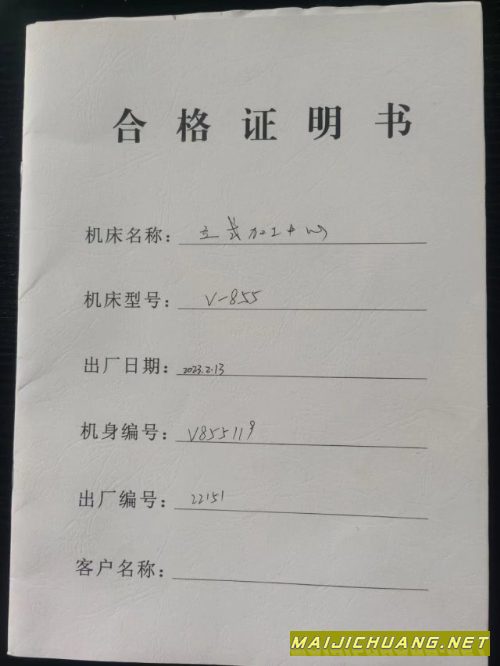 合格证明书
机床名称：立式加工中心
机床型号：V-855
出厂日期：2023.2.13
机身编号：V855119
出厂编号：22151
客户名称：
MAIJICHUANG.NET